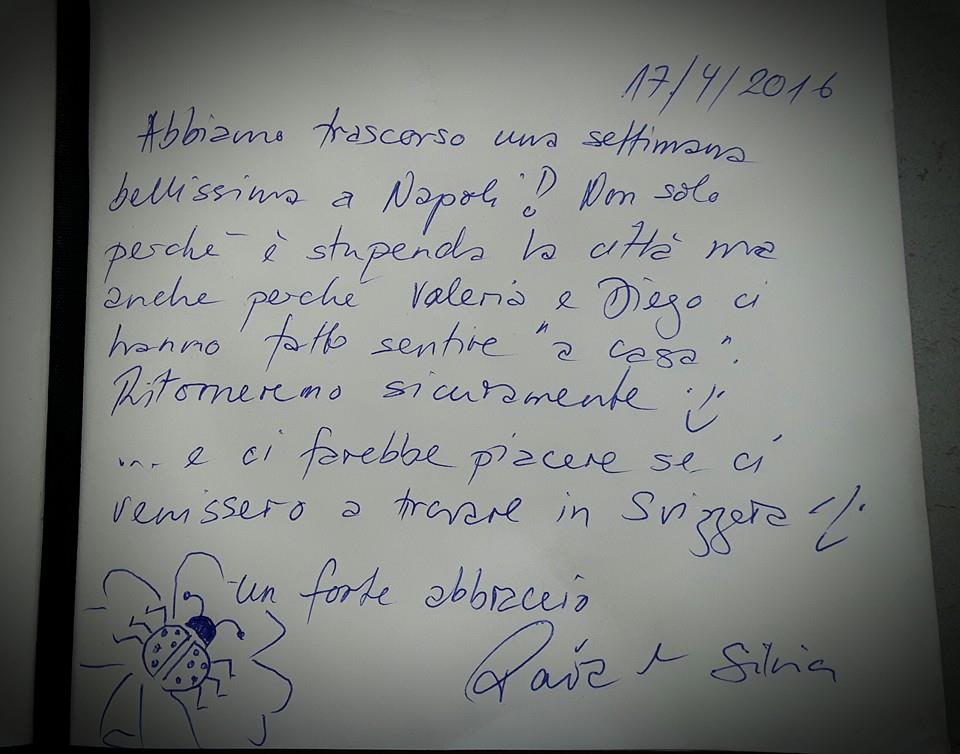 17/4/2016
Abbiamo trascorso una settimana
bellissima a Napoli! Non solo
perché è stupenda la città ma
anche perché Valeria e Diego ci
hanno fatto sentire "a casa".
Ritorneremo sicuramente
... e ci farebbe piacere se ci
venissero a trovare in Svizzera
un forte abbraccio
Silvia